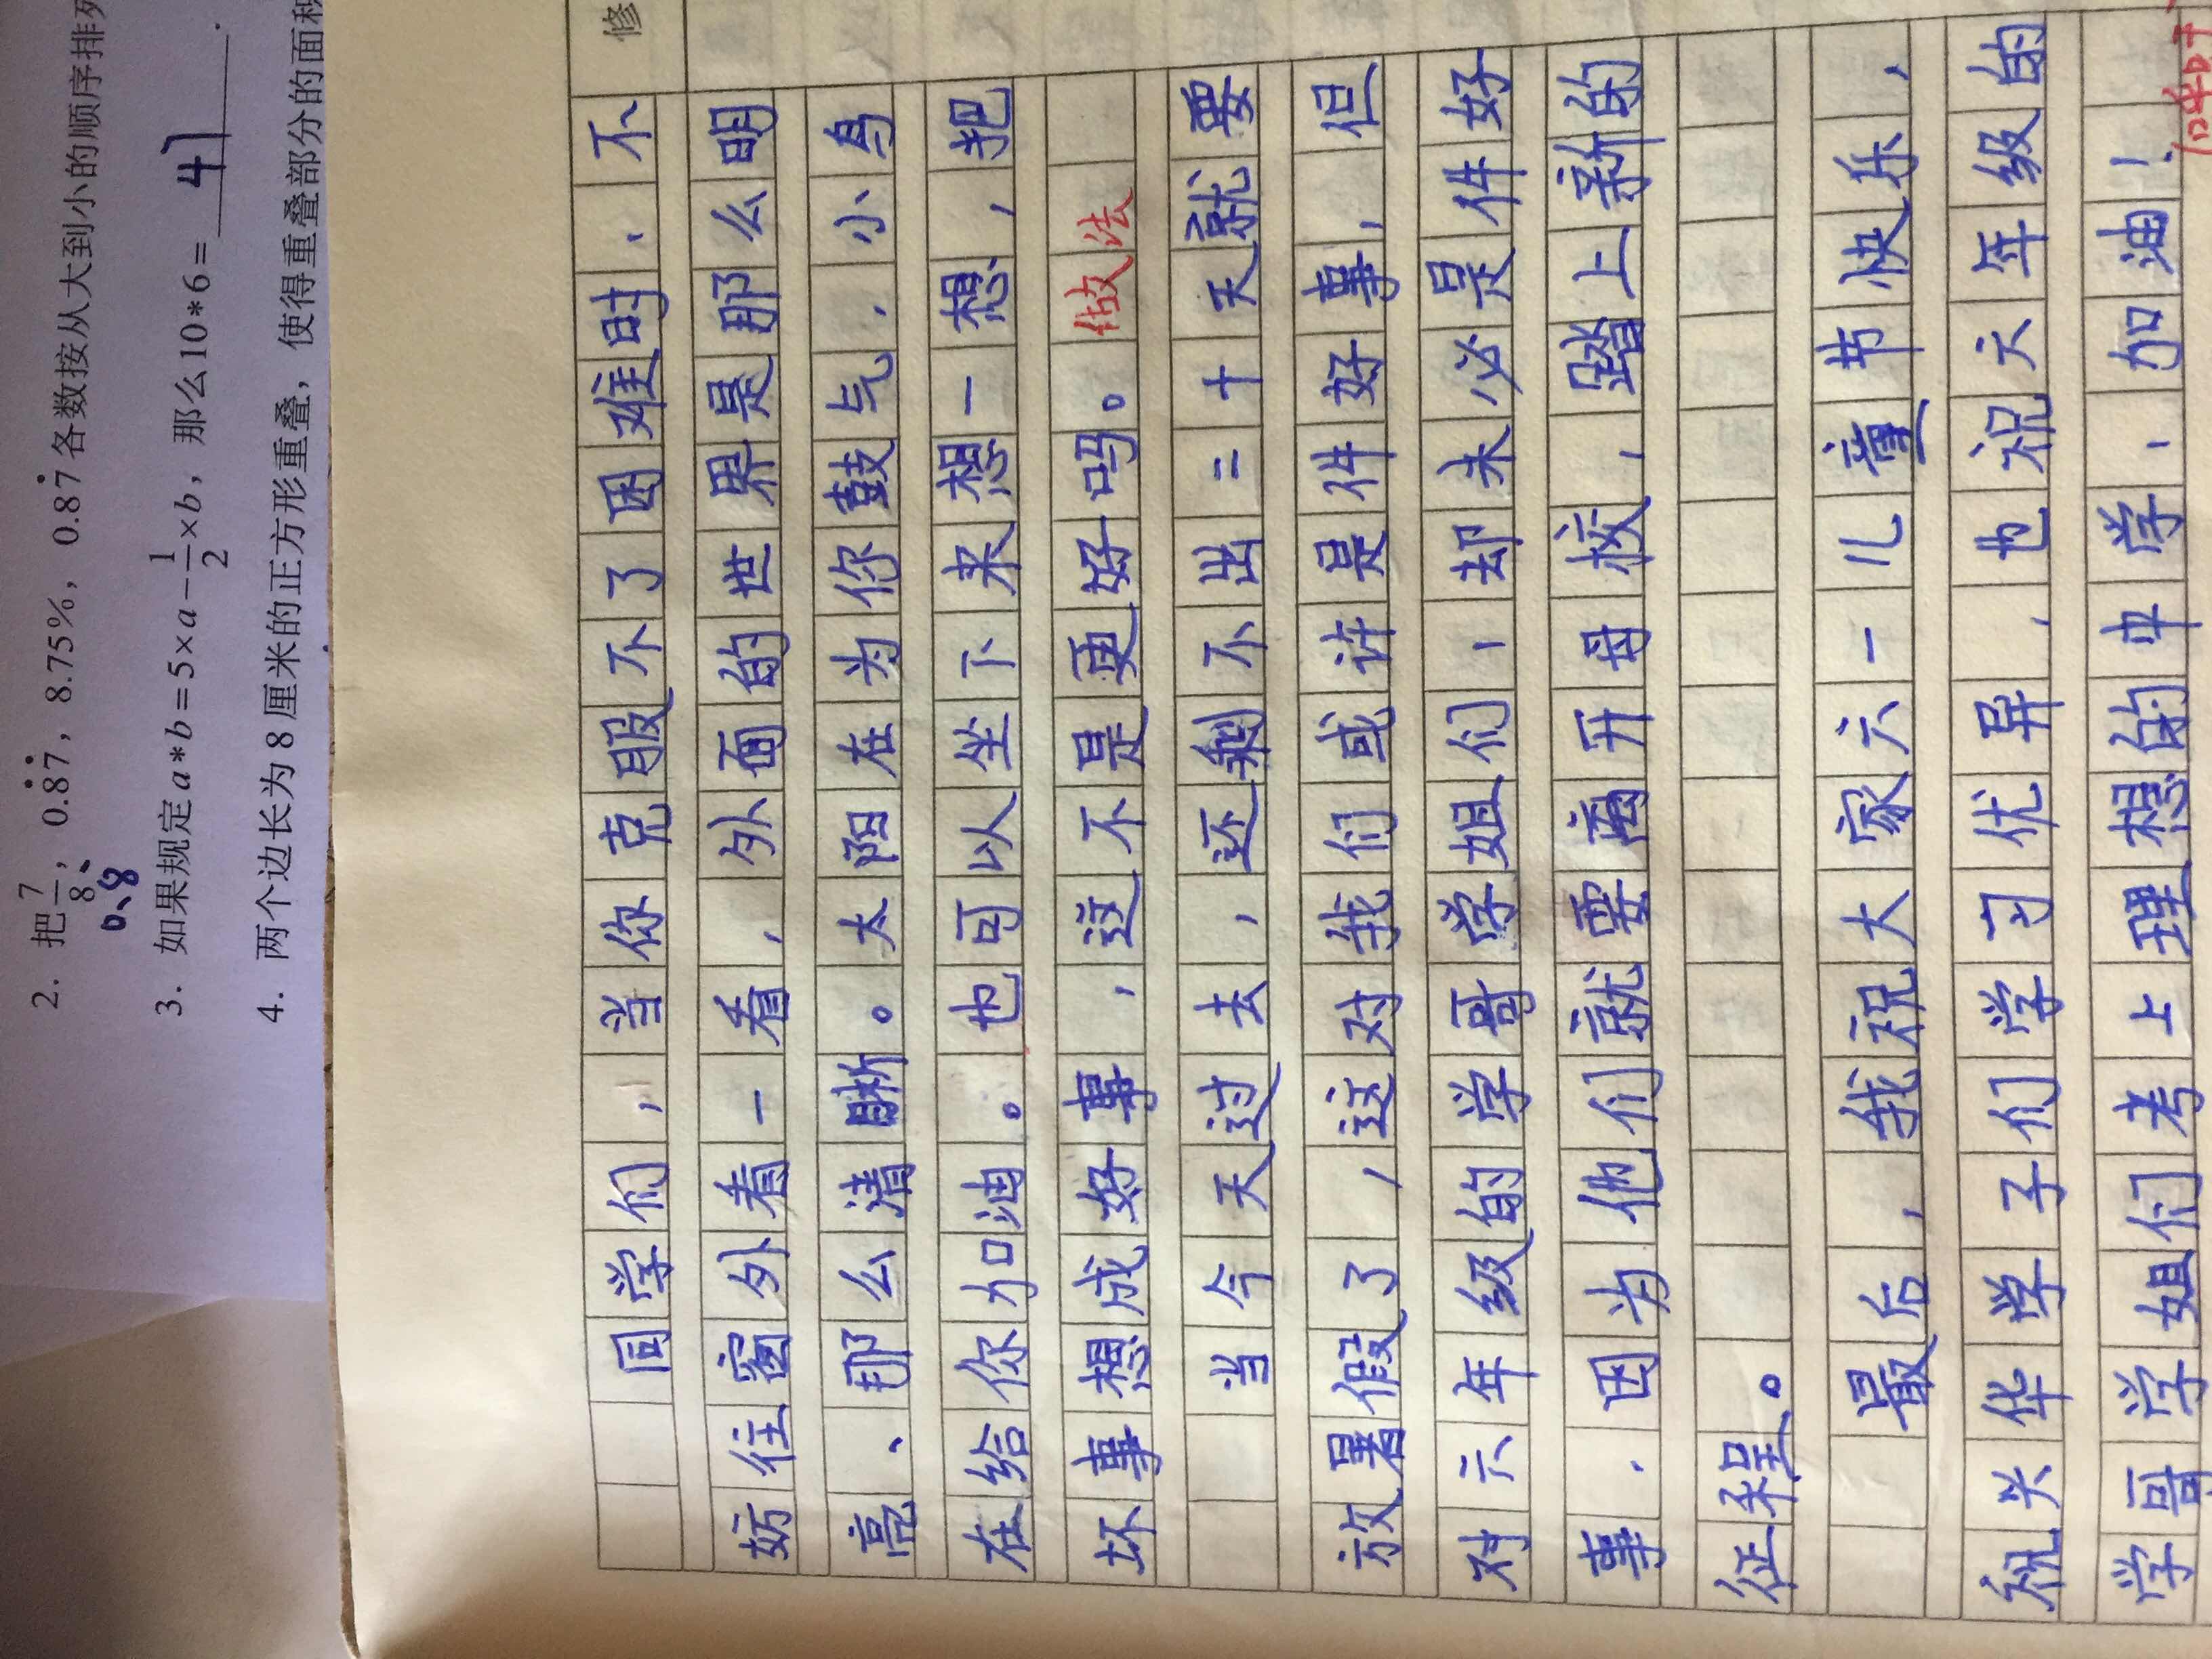 2. 把7/8，0.8̇7̇，8.75%，0.87̇各数按从大到小的顺序排列
0.8
3. 如果规定a*b=5×a−1/2×b，那么10*6= 47 .
4. 两个边长为8厘米的正方形重叠，使得重叠部分的面积
修
同学们，当你克服不了困难时，不
妨往窗外看一看，外面的世界是那么明
亮、那么清晰。太阳在为你鼓气，小鸟
在给你加油。也可以坐下来想一想，把
坏事想成好事，这不是更好吗。做法
当今天过去，还剩不出二十天就要
放暑假了，这对我们或许是件好事，但
对六年级的学哥学姐们，却未必是件好
事，因为他们就要离开母校，踏上新的
征程。
最后，我祝大家六一儿童节快乐，
祝兴华学子们学习优异，也祝六年级的
学哥学姐们考上理想的中学，加油！